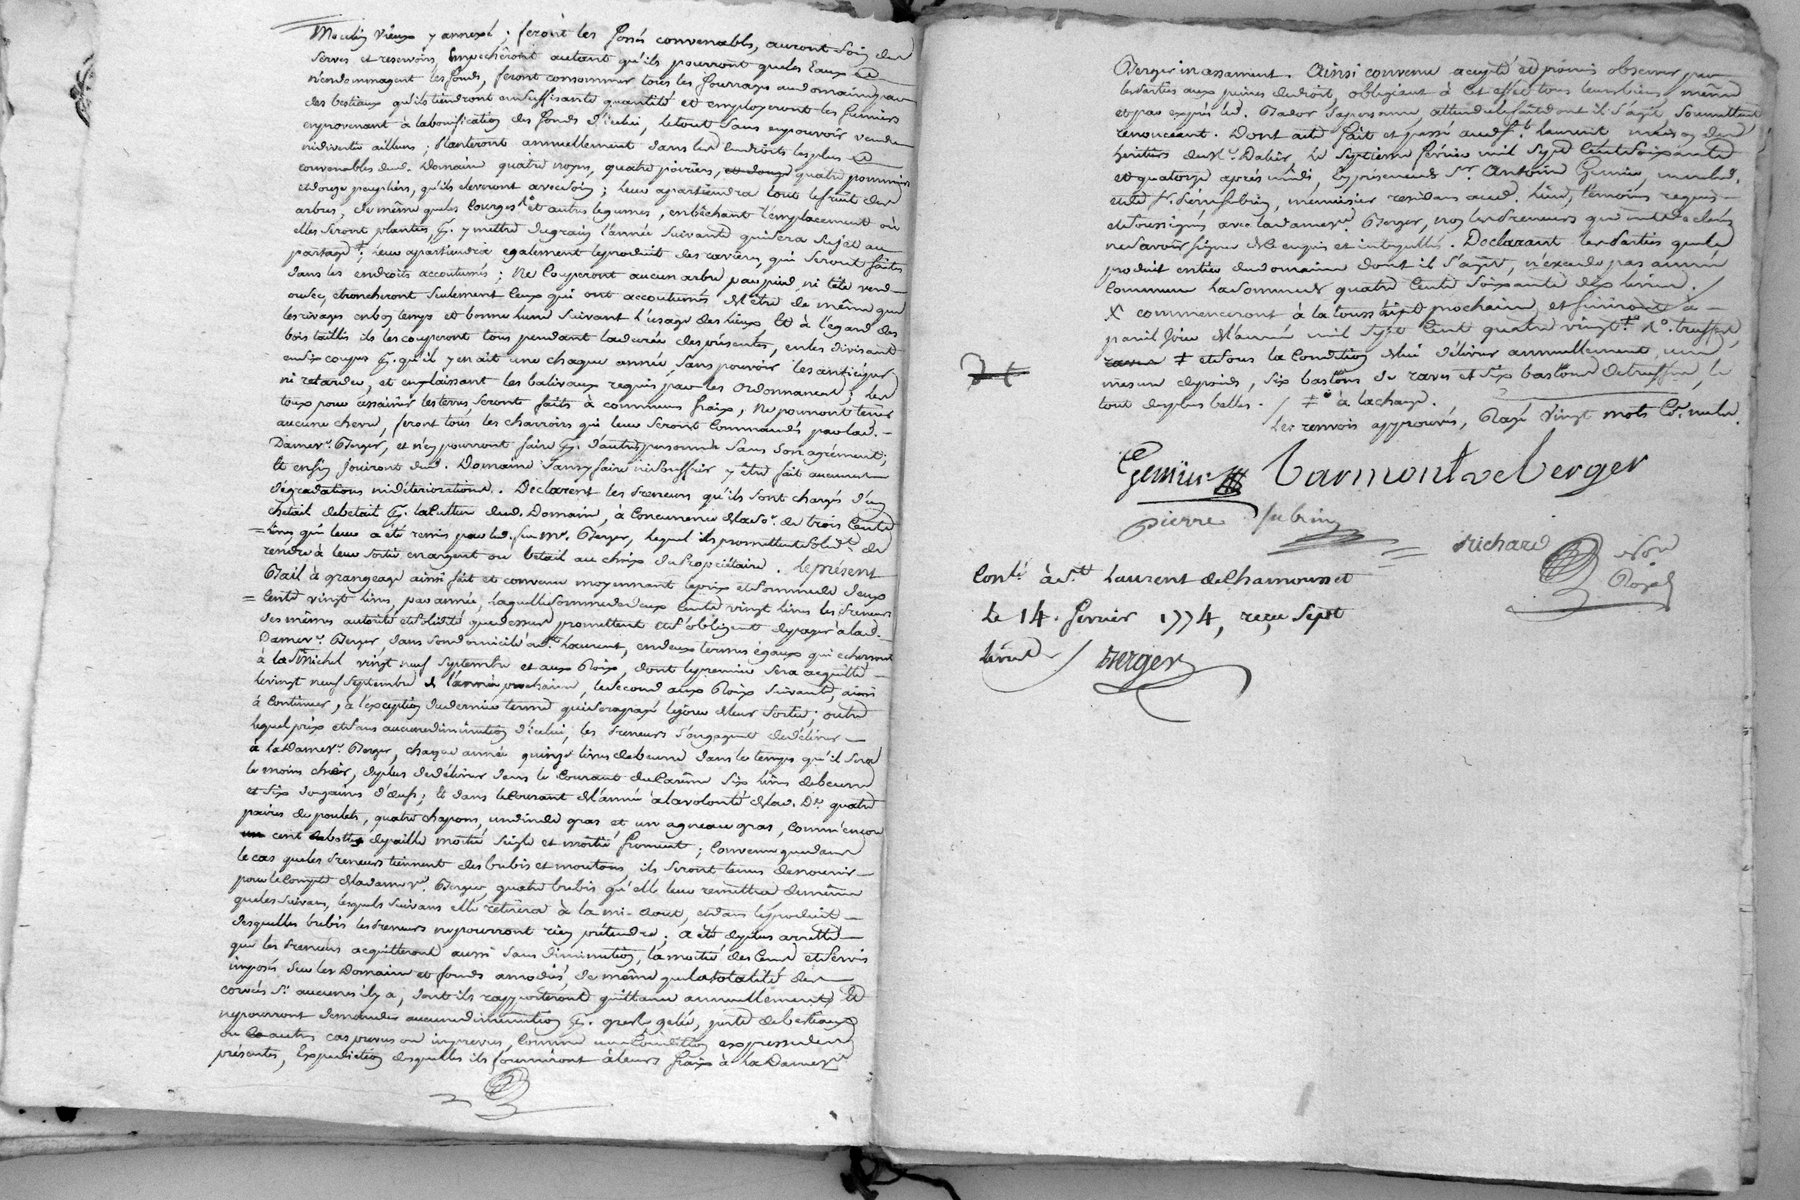 Moulin vieux y annexé ; feront les fossés convenables, auront soin des
serves et reservoirs, empecheront autant qu'ils pourront que les eaux
n'endommagent les fonds, feront consommer tous les fourrages aud. domaine par
des bestiaux qu'ils tiendront en suffisante quantité et employeront les fumiers
en provenant à la bonification des fonds d'icelui, le tout sans en pouvoir vendre
ni divertir ailleurs ; planteront annuellement dans les endroits les plus
convenables dud. Domaine quatre noyers, quatre poiriers, quatre pommiers
et douze peupliers, qu'ils eleveront avec soin ; leur apartiendra tout le fruit des
arbres, de même que les courges et autres legumes, en bêchant l'emplacement où
elles seront plantées, pr. y mettre du grain l'année suivante qui sera sujet au
partage ; leur apartiendra egalement le produit des ravières, qui seront faites
dans les endroits accoutumés ; ne couperont aucun arbre par pied ni tête verd
ou sec, ebrancheront seulement ceux qui ont accoutumés de l'être de même que
les rivages en bon temps et bonne lune suivant l'usage des lieux, et à l'egard des
bois taillis ils les couperont tous pendant la durée des présentes, en les divisant
en six coupes pr. qu'il y en ait une chaque année, sans pouvoir les anticiper
ni retarder, et en laissant les balivaux requis par les ordonnances ; les
toux pour assainir les terres, seront faits à communs fraix, ne pourront tenir
aucune chevre, feront tous les charrois qui leur seront commandés par lad.
Dame vve. Berger, et n'en pourront faire pr. d'autres personnes sans son agrément ;
et enfin jouiront dud. Domaine sans y faire ni souffrir y être fait aucunes
dégradations ni déteriorations. Declarent les preneurs qu'ils sont chargés d'un
cheptail de betail pr. la culture dud. Domaine, à concurrence de la so. de trois cents
livres, qui leur a été remis par led. feu Mr. Berger, lequel ils promettent solidt. de
rendre à leur sortie en argent ou betail au choix du propriétaire. Le présent
Bail à grangeage ainsi fait et convenu moyennant le prix et somme de deux
cents vingt livres, par année, laquelle somme de deux cents vingt livres les preneurs
des mêmes autorité et solidité que dessus promettent et s'obligent de payer à lad.
Dame vve. Berger, dans son domicile aud. St. Laurent, en deux termes égaux qui echerront
à la St. Michel vingt neuf septembre et aux Roix, dont le premier sera acquitté
le vingt neuf septembre de l'année prochaine, le second aux Roix suivant, ainsi
à continuer, à l'exception du dernier terme qui sera payé le jour de leur sortie ; outre
lequel prix et sans aucune diminution d'icelui, les preneurs s'engagent de délivrer
à la Dame vve. Berger, chaque année quinze livres de beurre dans le temps qu'il sera
le moins cher, de plus de délivrer dans le courant du carême six livres de beurre
et six douzaines d'œufs ; et dans le courant de l'année à la volonté de lad. De. quatre
paires de poulets, quatre chapons, un dinde gras et un agneau gras, comm'encore
cent de paille moitié seigle et moitié froment ; convenu que dans
le cas que les preneurs tiennent des brebis et moutons, ils seront tenus de nourrir
pour le compte de lad. Dame vve. Berger, quatre brebis qu'elle leur remettra de même
que les suivans, lesquels suivans elle retirera à la mi-aout, et dans le produit
desquelles brebis les preneurs ne pourront rien prétendre ; a été de plus arretté
que les preneurs acquitteront aussi sans diminution, la moitié des cens et servis
imposés sur les Domaine et fonds amodiés, de même que la totalité des
corvées si aucunes il y a, dont ils rapporteront quittance annuellement, et
ne pourront demander aucune diminution pr. gresle, gelée, perte de bestiaux
ou autres cas prevus ou imprevus, comme une condition expresse des
présentes, expedition desquelles ils fourniront à leurs fraix à la Dame vve.
Berger incessament. Ainsi convenu accepté et promis observer par
les parties aux peines de droit, obligeant à cet effet tous leurs biens même
et par exprès led. Bador sa personne, attendu le fait dont il s'agit, soumettant
renonceant. Dont acte fait et passé aud. St. Laurent maison des
heritiers du Sr. Dalin, le septieme février mil sept cents soixante
et quatorze après midi, en présence de Sr. Antoine Gemier, marchd.
et de Sr. Pierre Subrin, menuisier residens aud. lieu, témoins requis
et soussignés avec lad. Dame vve. Berger, non les preneurs qui ont declaré
ne savoir signer de ce enquis et interpellés. Declarant les parties que le
produit entier du domaine dont il s'agit, n'excede pas année
commune la somme de quatre cents soixante dix livres. /
X commenceront à la toussaint prochaine et finiront à
pareil jour de l'année mil sept cent quatre vingt. ‡ truffes,
‡ et sous la condition de lui délivrer annuellement, une
mesure de poids, six bastons de raves et six bastons de truffes, le
tout des plus belles. / ‡ à la charge.
Les renvois approuvés, Rayé vingt mots co. nuls.
Gemier Varmont ve berger
pierre subrin
Richard Nore
Royal
Conlé à St. Laurent de Chamousset
le 14. fevrier 1774, reçu sept
livres / Berger